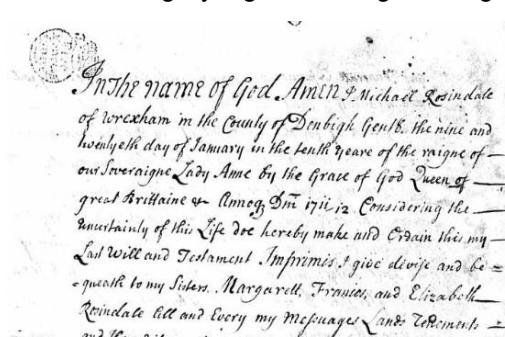 In The name of God Amen I Michael Rosindale
of Wrexham in the County of Denbigh Gentl. the nine and
twentyeth day of January in the tenth yeare of the raigne of
our Soveraigne Lady Anne by the Grace of God Queen of
great Brittaine & Annoq Dm 1711/12 Considering the
uncertainty of this Life doe hereby make and Ordain this my
Last Will and Testament Imprimis I give devise and be=
=queath to my Sisters Margarett, Frances, and Elizabeth
Rosindale All and Every my Messuages Lands Tenements
and